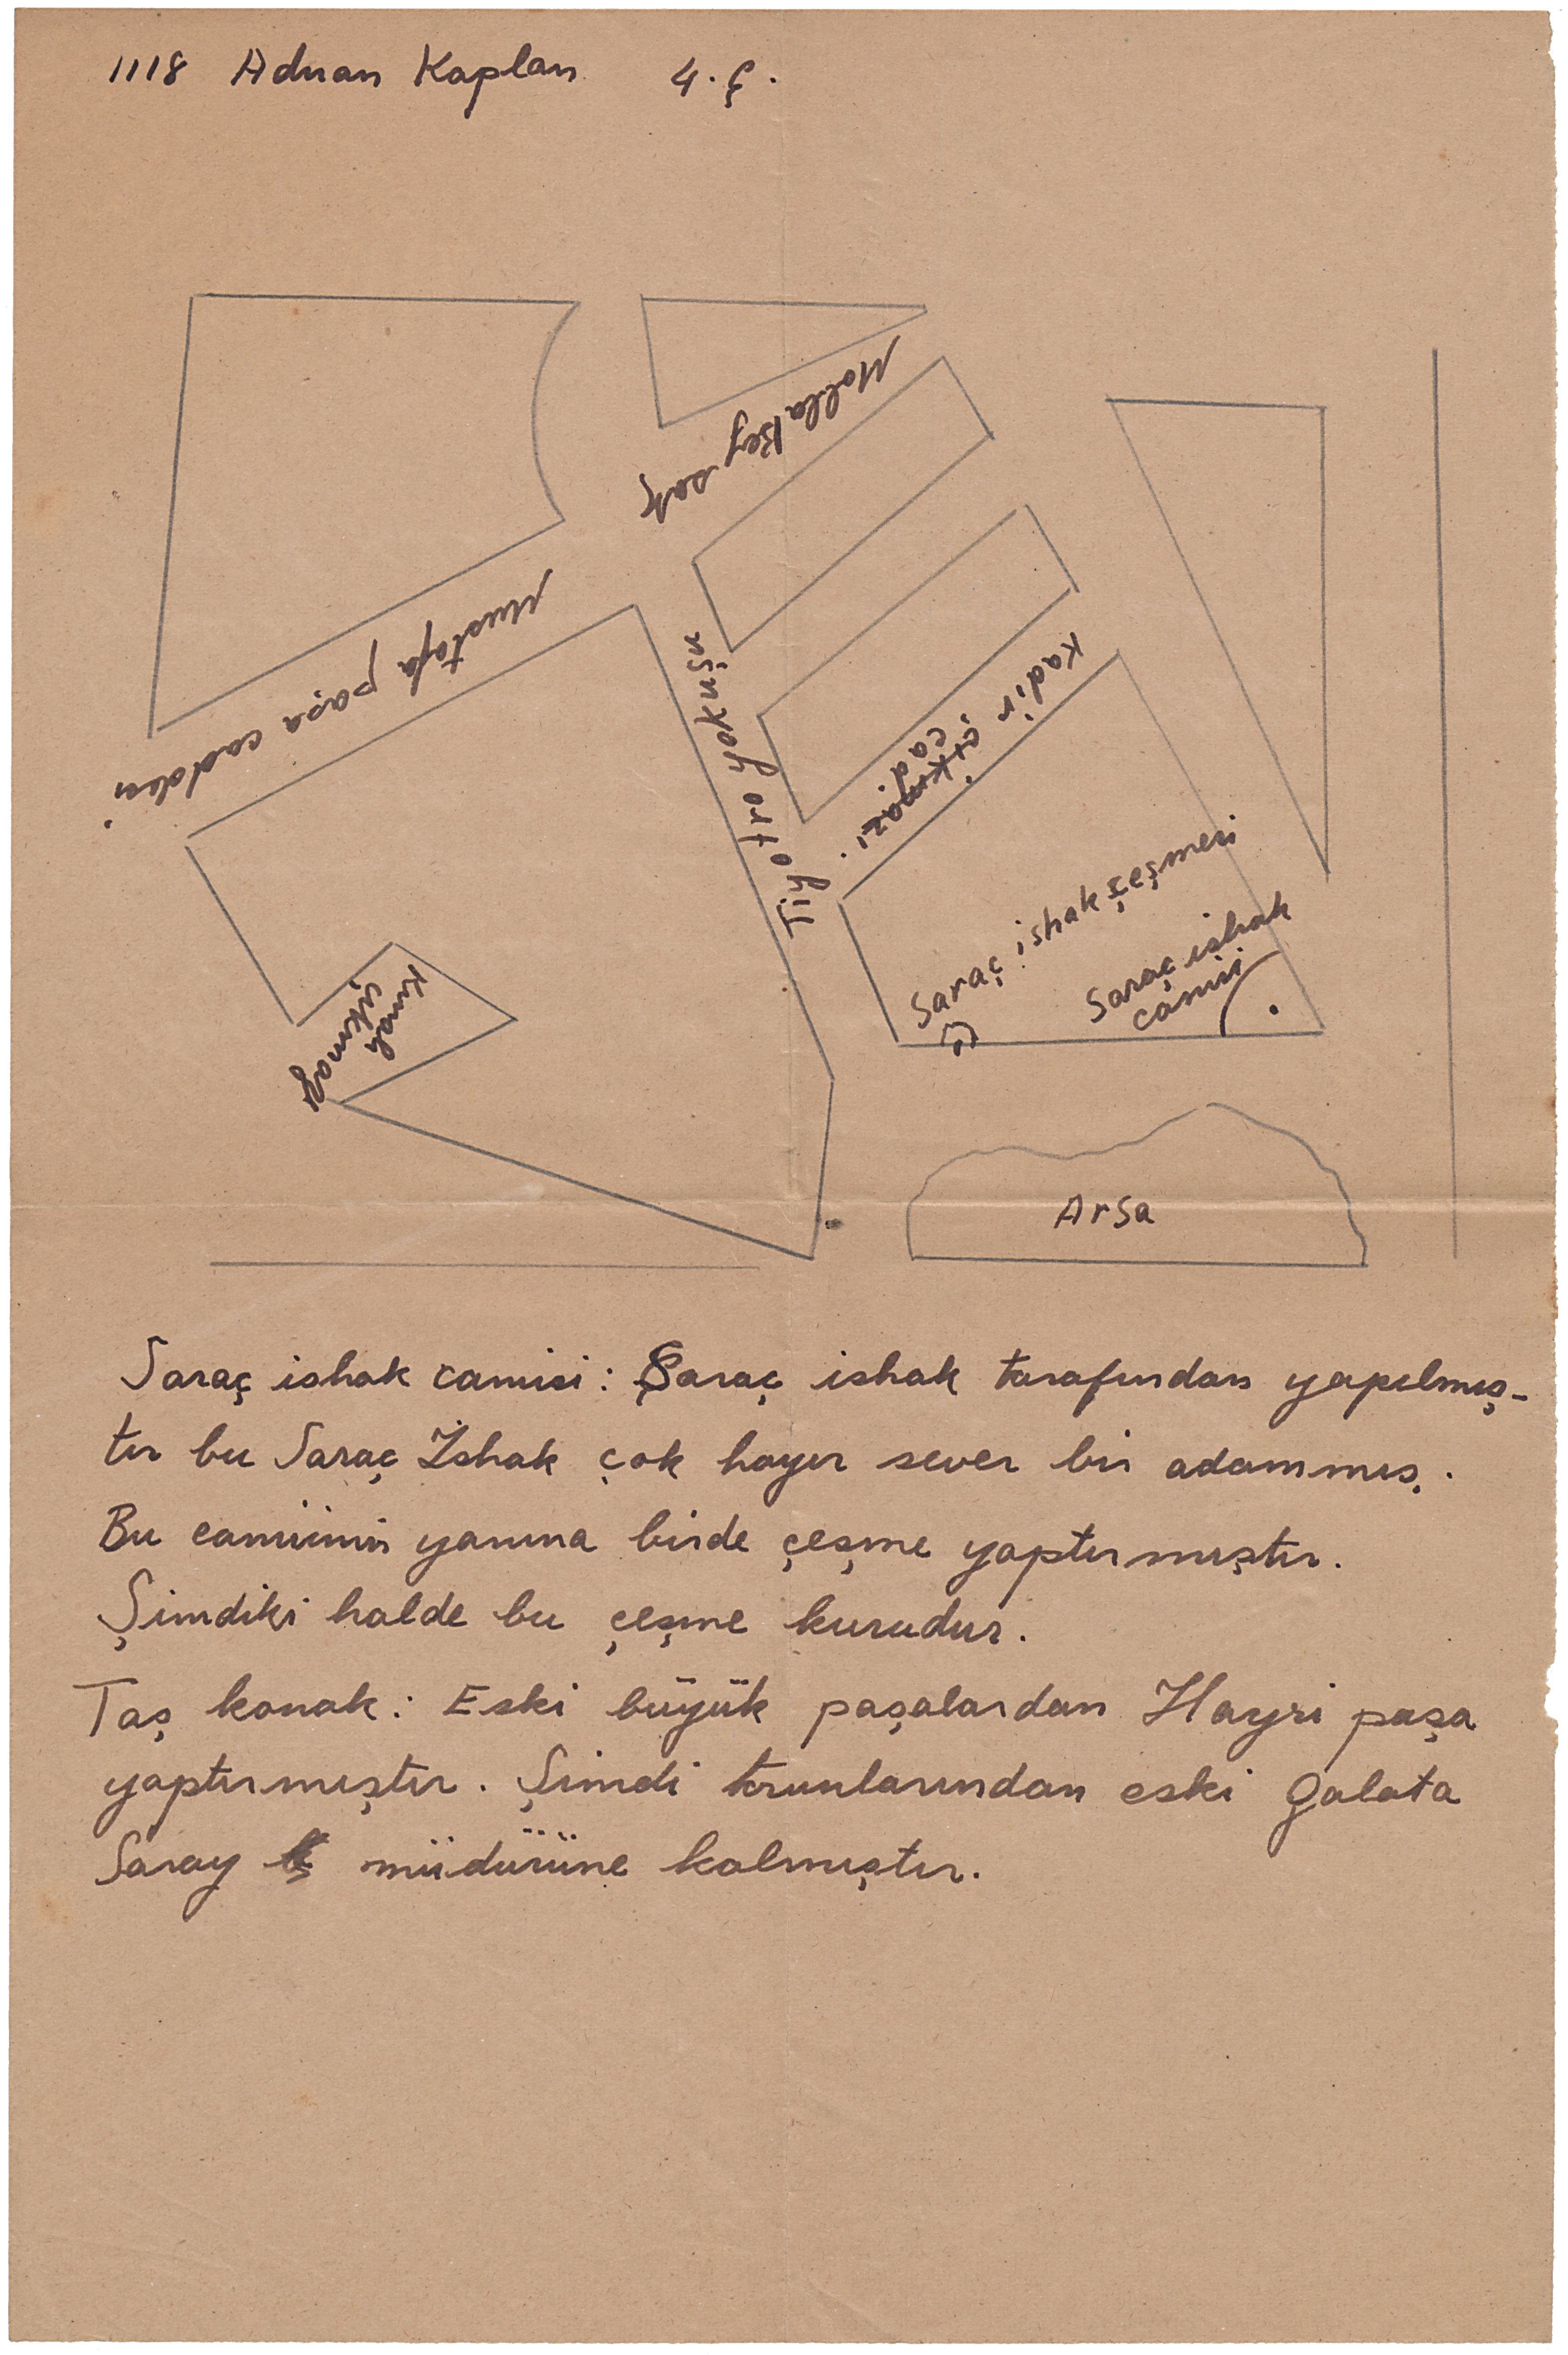 1118 Adnan Kaplan 4. Ç.
Molla Bey sok
Mustafa paşa caddesi
Tiyatro yokuşu
Kadir çıkmazı.
cad.
Saraç ishak çeşmesi
Saraç ishak
camisi
çıkmazı
Arsa
Saraç ishak camisi: Saraç ishak tarafından yapılmış-
tır bu Saraç İshak çok hayır sever bir adammış.
Bu camiinin yanına birde çeşme yaptırmıştır.
Şimdiki halde bu çeşme kurudur.
Taş konak: Eski büyük paşalardan Hayri paşa
yaptırmıştır. Şimdi torunlarından eski Galata
Saray müdürüne kalmıştır.